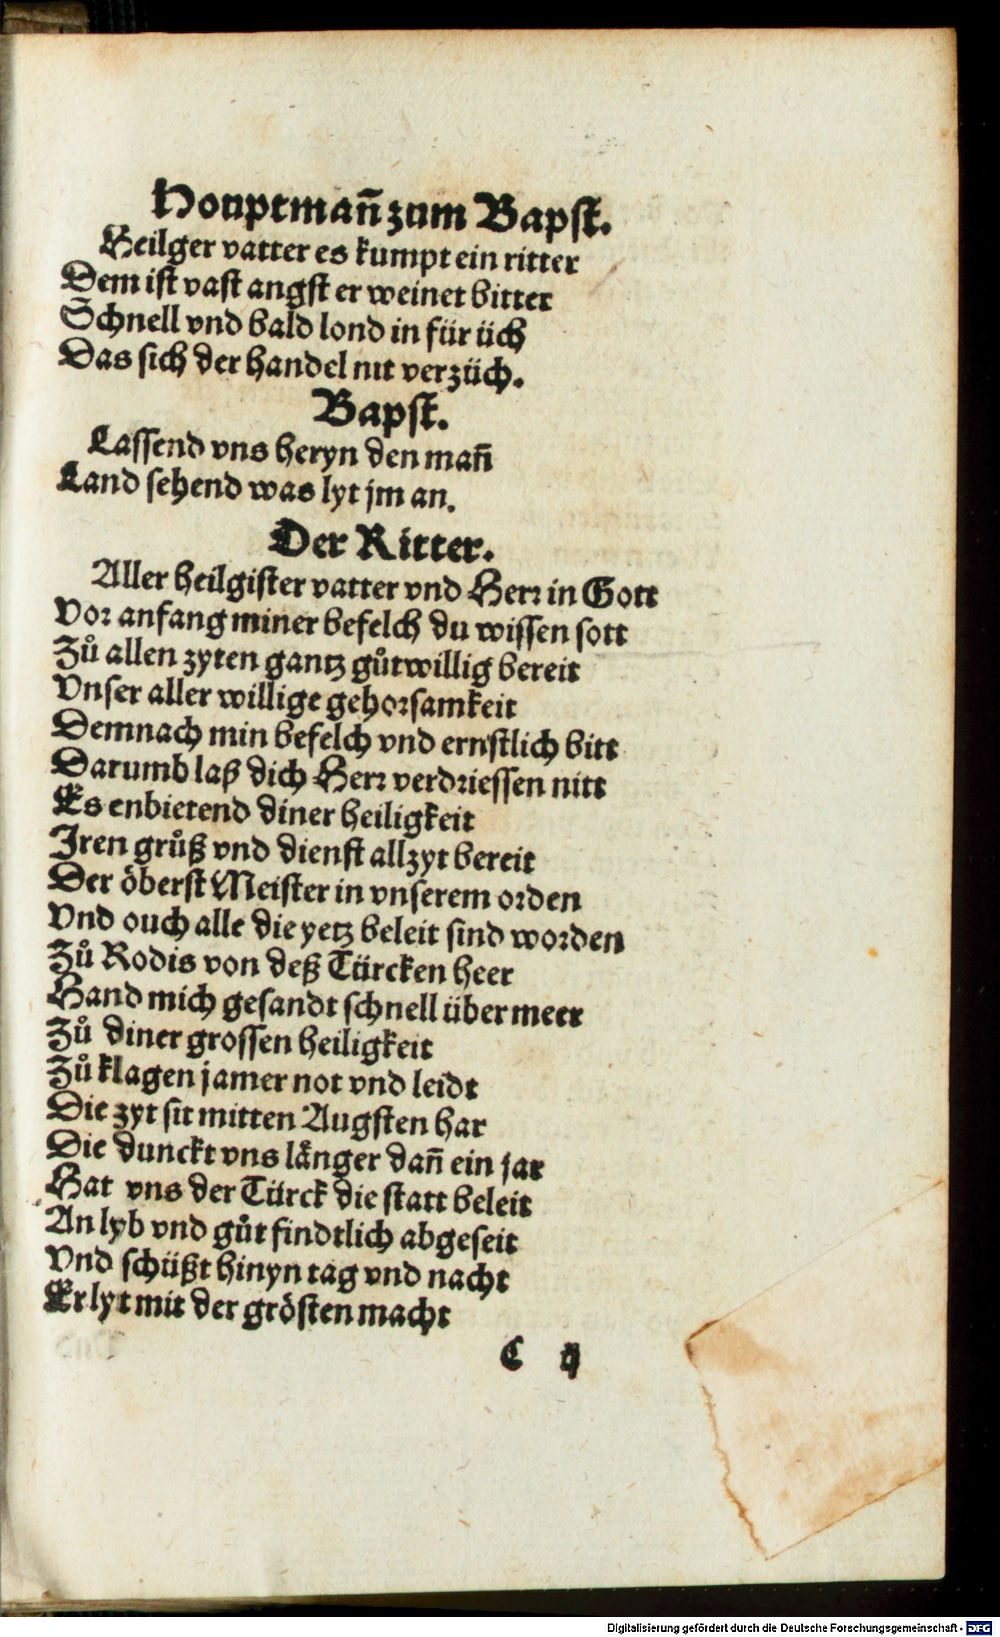 Houptman̄ zum Bapst.
Heilger vatter es kumpt ein ritter
Dem ist vast angst er weinet bitter
Schnell vnd bald lond in für üch
Das sich der handel nit verzüch.
Bapst.
Lassend vns heryn den man̄
Land sehend was lyt jm an.
Der Ritter.
Aller heilgister vatter vnd Herr in Gott
Vor anfang miner befelch du wissen sott
Zů allen zyten gantz gůtwillig bereit
Vnser aller willige gehorsamkeit
Demnach min befelch vnd ernstlich bitt
Darumb laß dich Herr verdriessen nitt
Es enbietend diner heiligkeit
Iren grůß vnd dienst allzyt bereit
Der öberst Meister in vnserem orden
Vnd ouch alle die yetz beleit sind worden
Zů Rodis von deß Türcken heer
Hand mich gesandt schnell über meer
Zů diner grossen heiligkeit
Zů klagen jamer not vnd leidt
Die zyt sit mitten Augsten har
Die dunckt vns länger dan̄ ein jar
Hat vns der Türck die statt beleit
An lyb vnd gůt findtlich abgeseit
Vnd schüßt hinyn tag vnd nacht
Er lyt mit der grösten macht
C ij
Digitalisierung gefördert durch die Deutsche Forschungsgemeinschaft - DFG